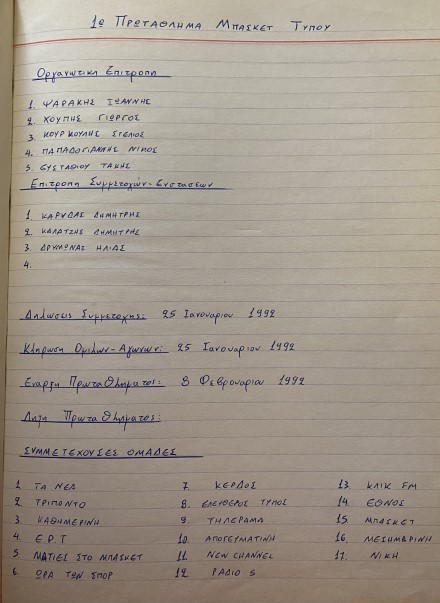 1ο ΠΡΩΤΑΘΛΗΜΑ ΜΠΑΣΚΕΤ ΤΥΠΟΥ
Οργανωτική Επιτροπή
1. ΨΑΡΑΚΗΣ ΙΩΑΝΝΗΣ
2. ΧΟΥΠΗΣ ΓΙΩΡΓΟΣ
3. ΚΟΥΡΚΟΥΛΗΣ ΣΤΕΛΙΟΣ
4. ΠΑΠΑΔΟΓΙΑΝΝΗΣ ΝΙΚΟΣ
5. ΕΥΣΤΑΘΙΟΥ ΤΑΚΗΣ
Επιτροπή Συμμετοχών-Ενστάσεων
1. ΚΑΡΥΔΑΣ ΔΗΜΗΤΡΗΣ
2. ΚΑΛΑΤΖΗΣ ΔΗΜΗΤΡΗΣ
3. ΔΡΥΜΩΝΑΣ ΗΛΙΑΣ
4.
Δηλώσεις Συμμετοχής: 25 Ιανουαρίου 1992
Κλήρωση Ομίλων-Αγώνων: 25 Ιανουαρίου 1992
Έναρξη Πρωταθλήματος: 8 Φεβρουαρίου 1992
Λήξη Πρωταθλήματος:
ΣΥΜΜΕΤΕΧΟΥΣΕΣ ΟΜΑΔΕΣ
1 ΤΑ ΝΕΑ
2 ΤΡΙΠΟΝΤΟ
3 ΚΑΘΗΜΕΡΙΝΗ
4. Ε.Ρ.Τ
5 ΜΑΤΙΕΣ ΣΤΟ ΜΠΑΣΚΕΤ
6. ΩΡΑ ΤΩΝ ΣΠΟΡ
7. ΚΕΡΔΟΣ
8. ΕΛΕΥΘΕΡΟΣ ΤΥΠΟΣ
9. ΤΗΛΕΡΑΜΑ
10. ΑΠΟΓΕΥΜΑΤΙΝΗ
11. NEW CHANNEL
12. ΡΑΔΙΟ 5
13. ΚΛΙΚ FM
14. ΕΘΝΟΣ
15. ΜΠΑΣΚΕΤ
16. ΜΕΣΗΜΒΡΙΝΗ
17. ΝΙΚΗ